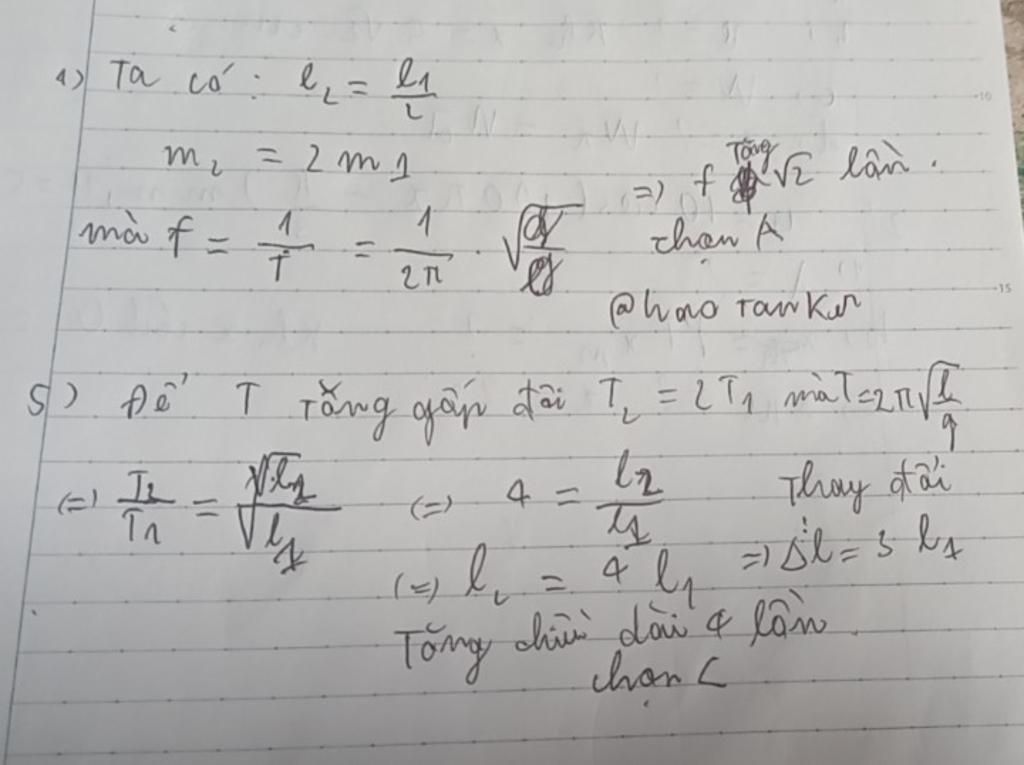 1) Ta có: l₂ = l1/2
m₂ = 2 m1
mà f = 1/T = 1/2π . √(g/l)
=> f Tăng √2 lần.
chọn A
@hao Tanker
5) Để T tăng gấp đôi T₂ = 2T1 mà T=2π√(l/g)
(=) T₂/T1 = √l₂/√l1 (=) 4 = l₂/l1
(=) l₂ = 4 l1
Thay đổi
=> Δl = 3 l1
Tăng chiều dài 4 lần.
chọn C